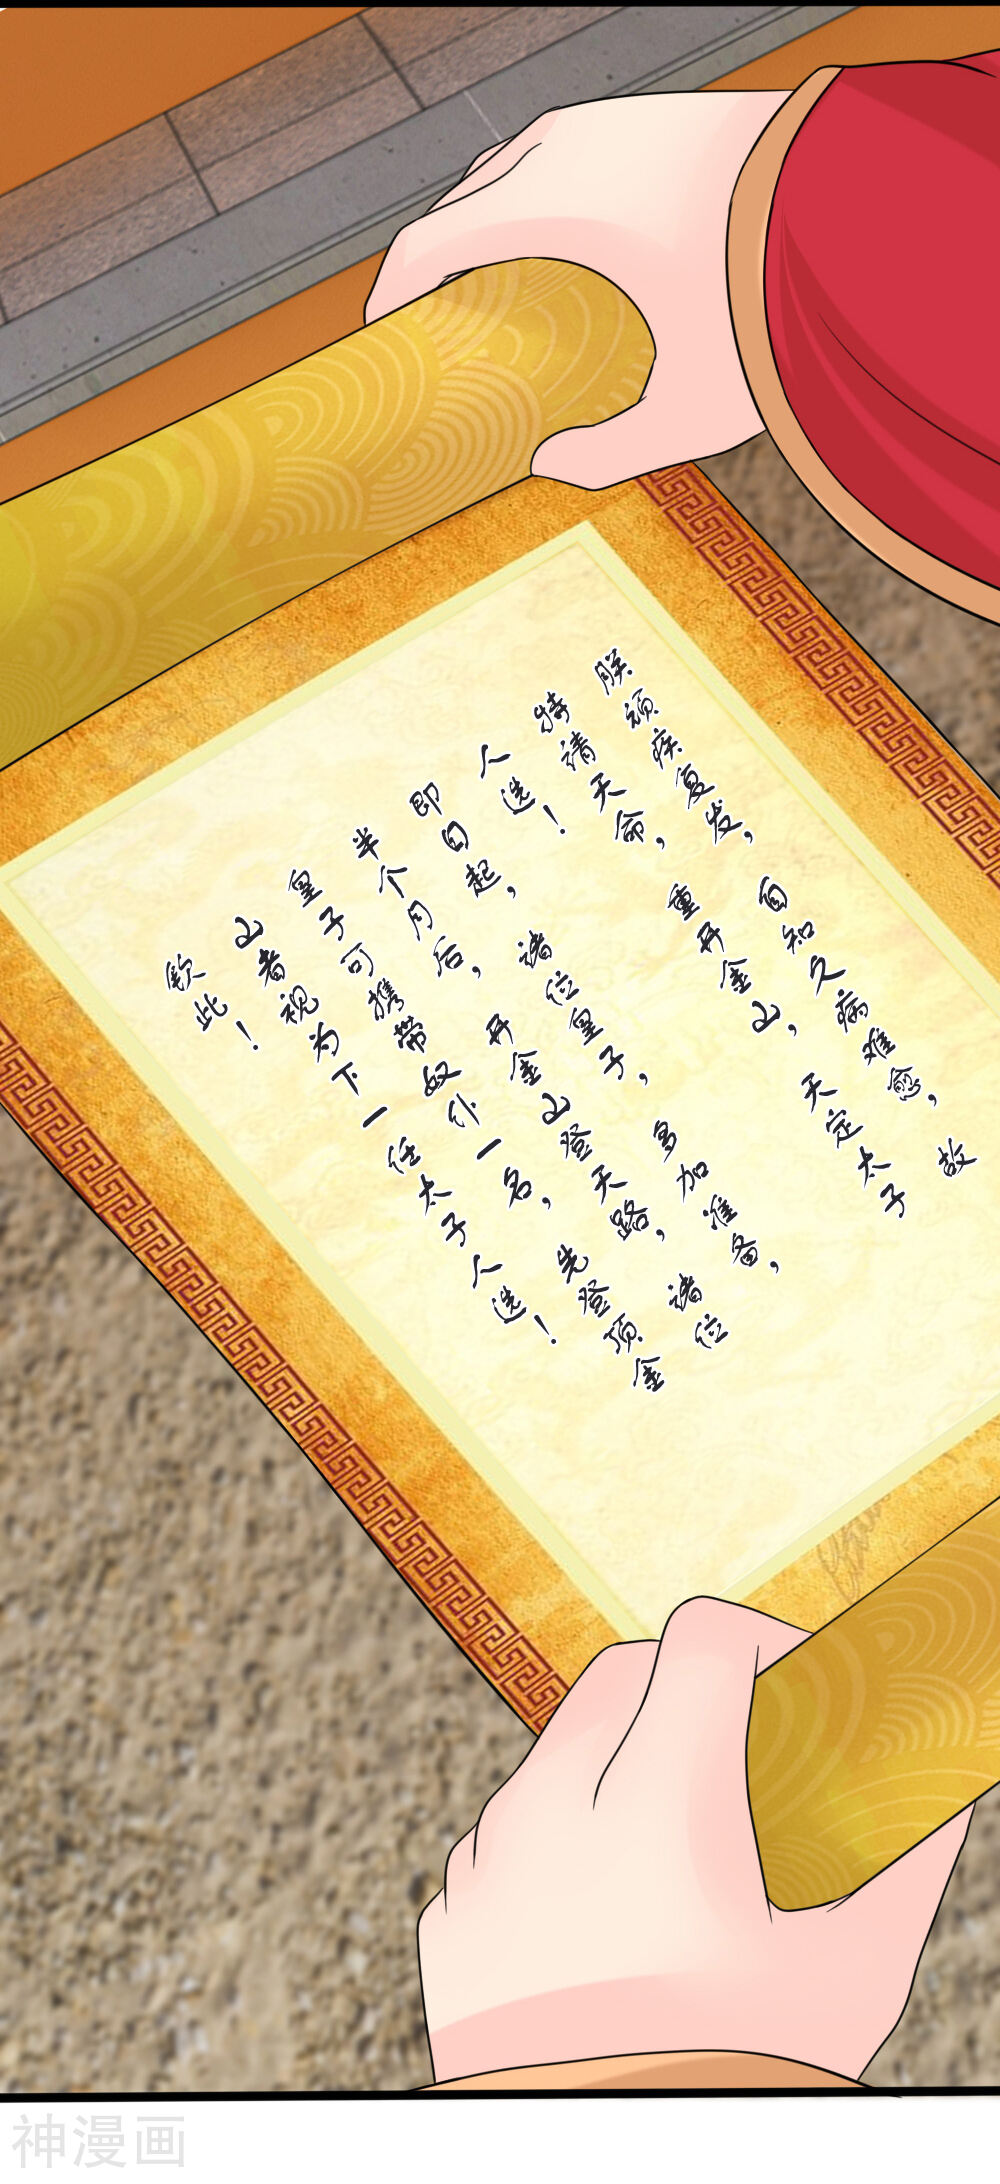 朕顽疾复发，自知久病难愈，故
特请天命，重开金山，天定太子
人选！
即日起，诸位皇子，多加准备，
半个月后，开金山登天路，诸位
皇子可携带奴仆一名，先登顶金
山者视为下一任太子人选！
钦此！
神漫画